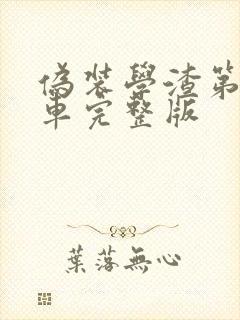 偽裝學渣第
車完整版
葉落無心